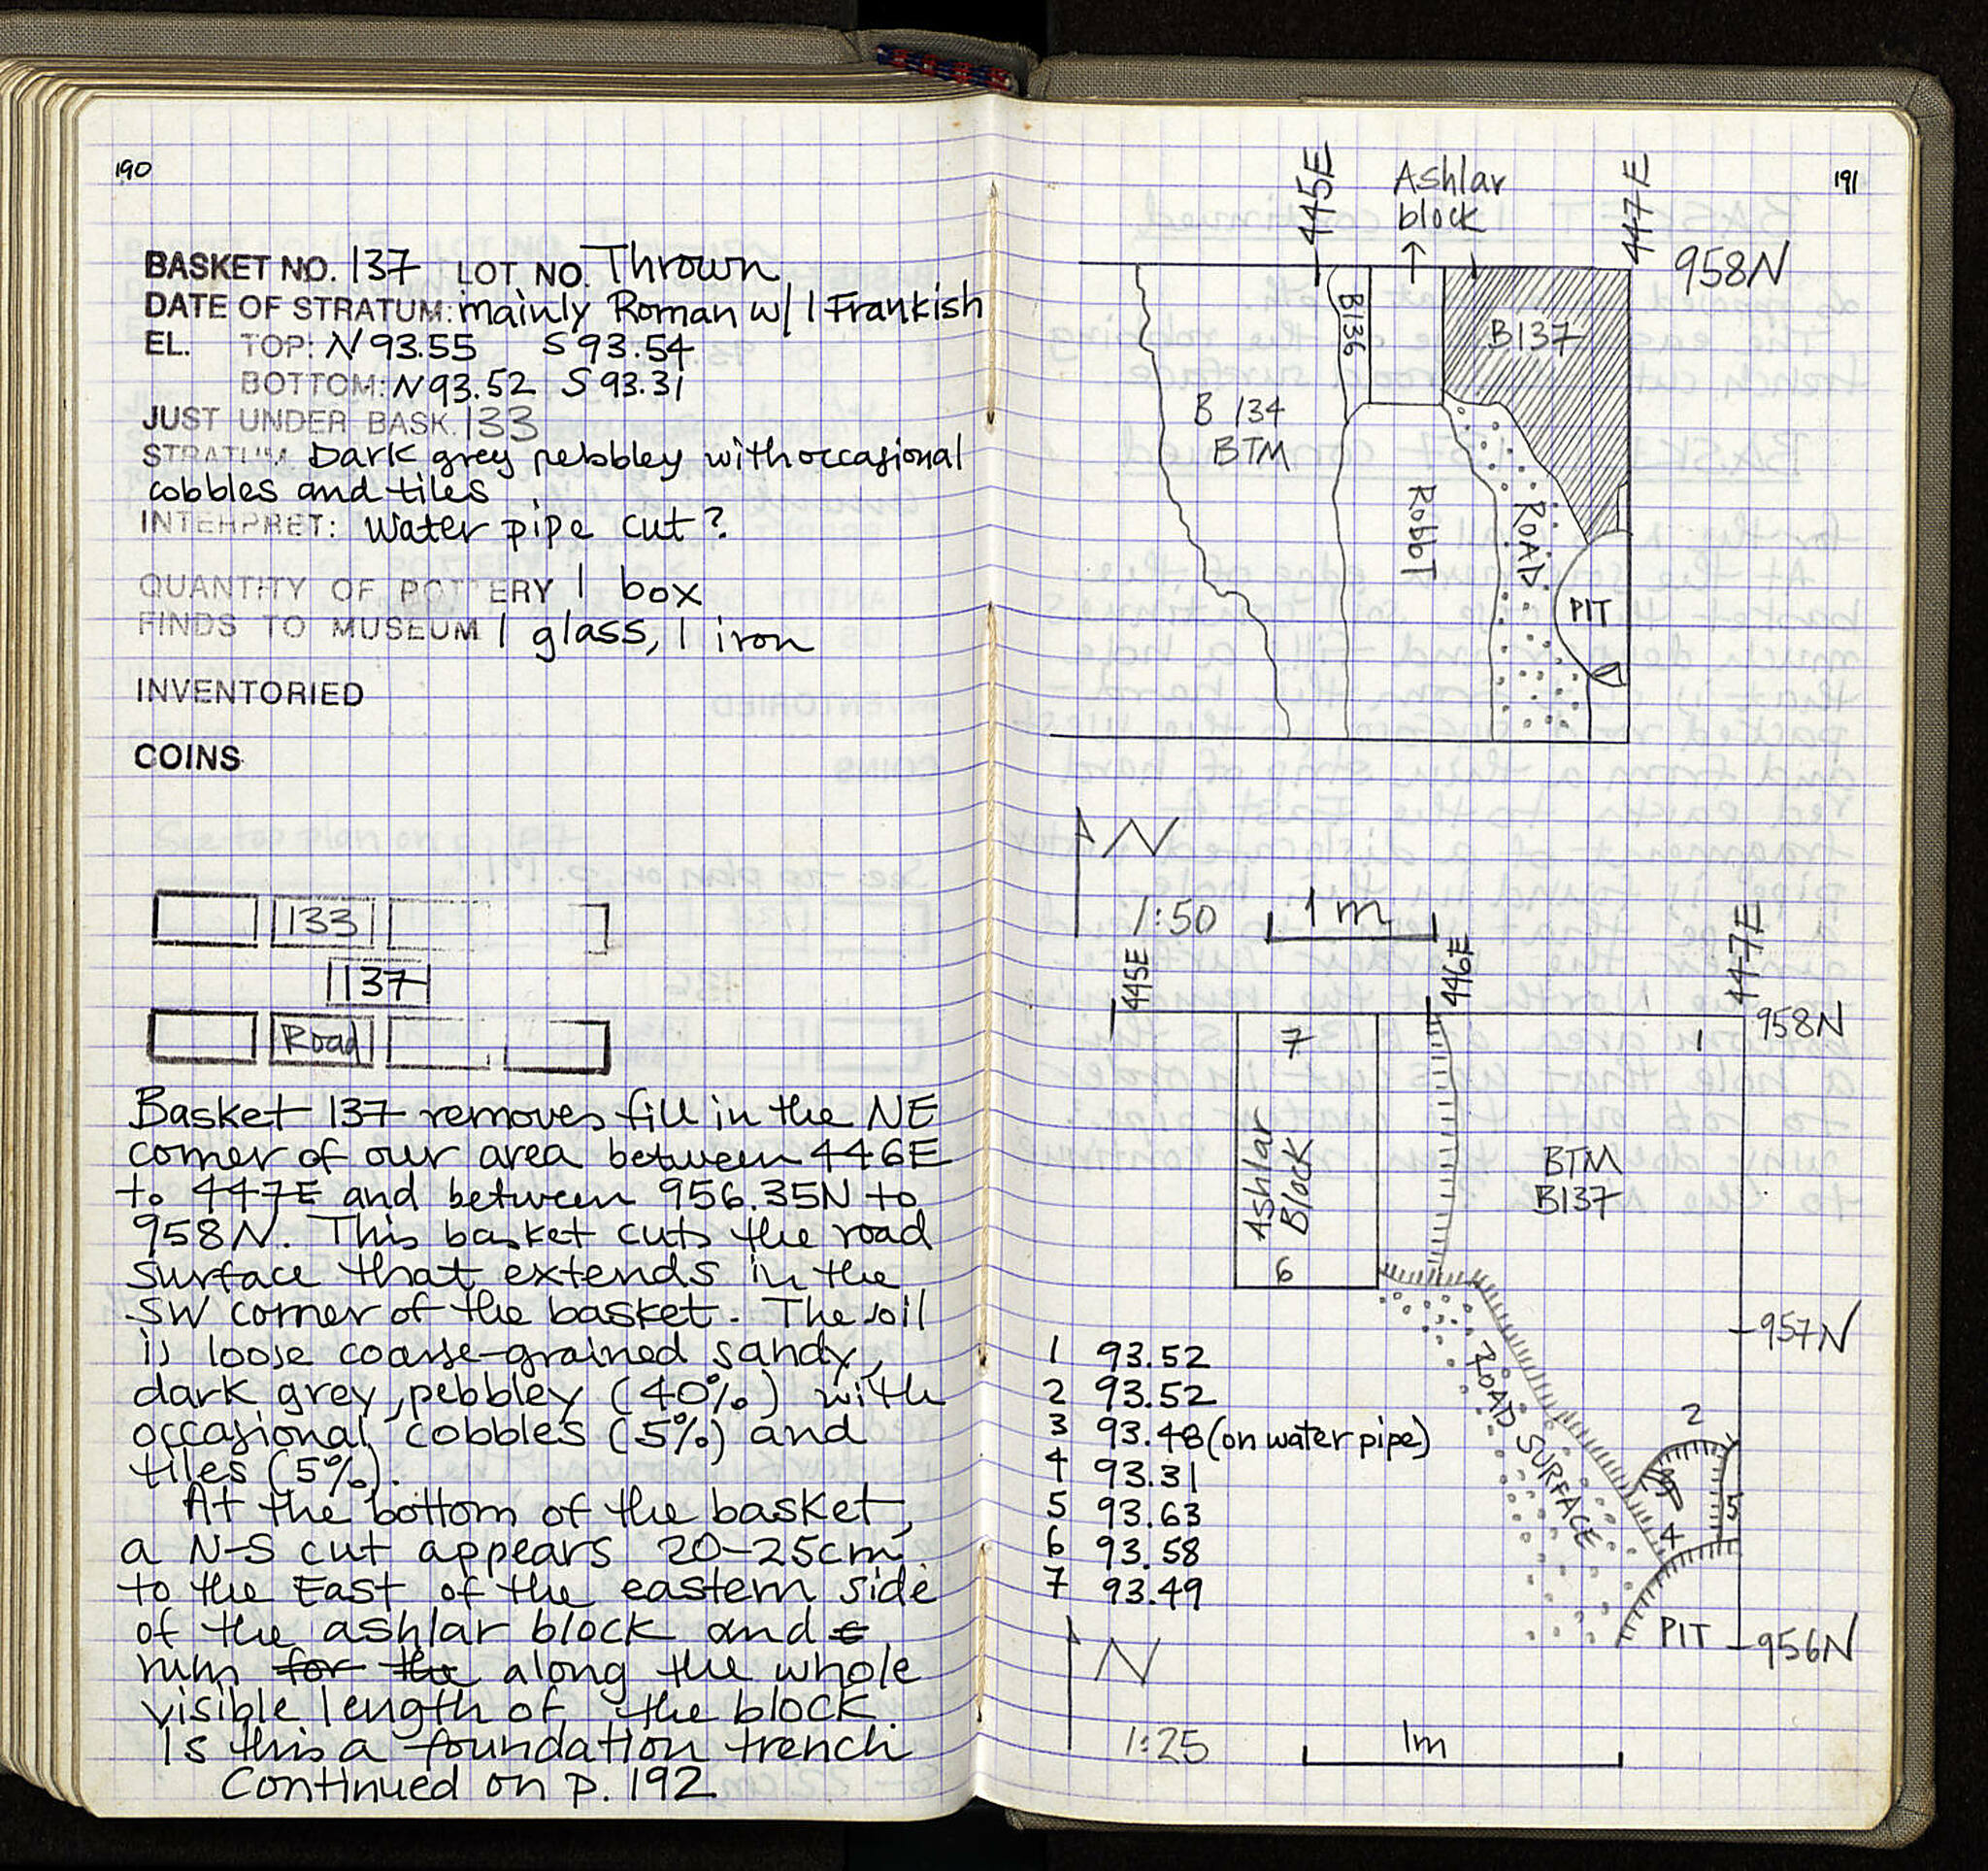 190
BASKET NO. 137 LOT NO. Thrown
DATE OF STRATUM: mainly Roman w/ 1 Frankish
EL. TOP: N 93.55 S 93.54
BOTTOM: N 93.52 S 93.31
JUST UNDER BASK. 133
STRATUM Dark grey pebbley with occasional
cobbles and tiles
INTERPRET: Water pipe cut?
QUANTITY OF POTTERY 1 box
FINDS TO MUSEUM 1 glass, 1 iron
INVENTORIED
COINS
133
137
Road
Basket 137 removes fill in the NE
corner of our area between 446E
to 447E and between 956.35N to
958N. This basket cuts the road
surface that extends in the
SW corner of the basket. The soil
is loose coarse-grained sandy,
dark grey, pebbley (40%) with
occasional cobbles (5%) and
tiles (5%).
At the bottom of the basket,
a N-S cut appears 20-25cm.
to the East of the eastern side
of the ashlar block and
runs for the along the whole
visible length of the block.
Is this a foundation trench
Continued on p. 192
191
445E
Ashlar
block
447E
958N
B136
B137
B 134
BTM
RobbT
ROAD
PIT
N
1:50
1 m
445E
446E
447E
958N
7
1
Ashlar
Block
BTM
B137
6
957N
1 93.52
2 93.52
3 93.48 (on water pipe)
4 93.31
5 93.63
6 93.58
7 93.49
ROAD SURFACE
2
5
4
PIT
956N
N
1:25
1m